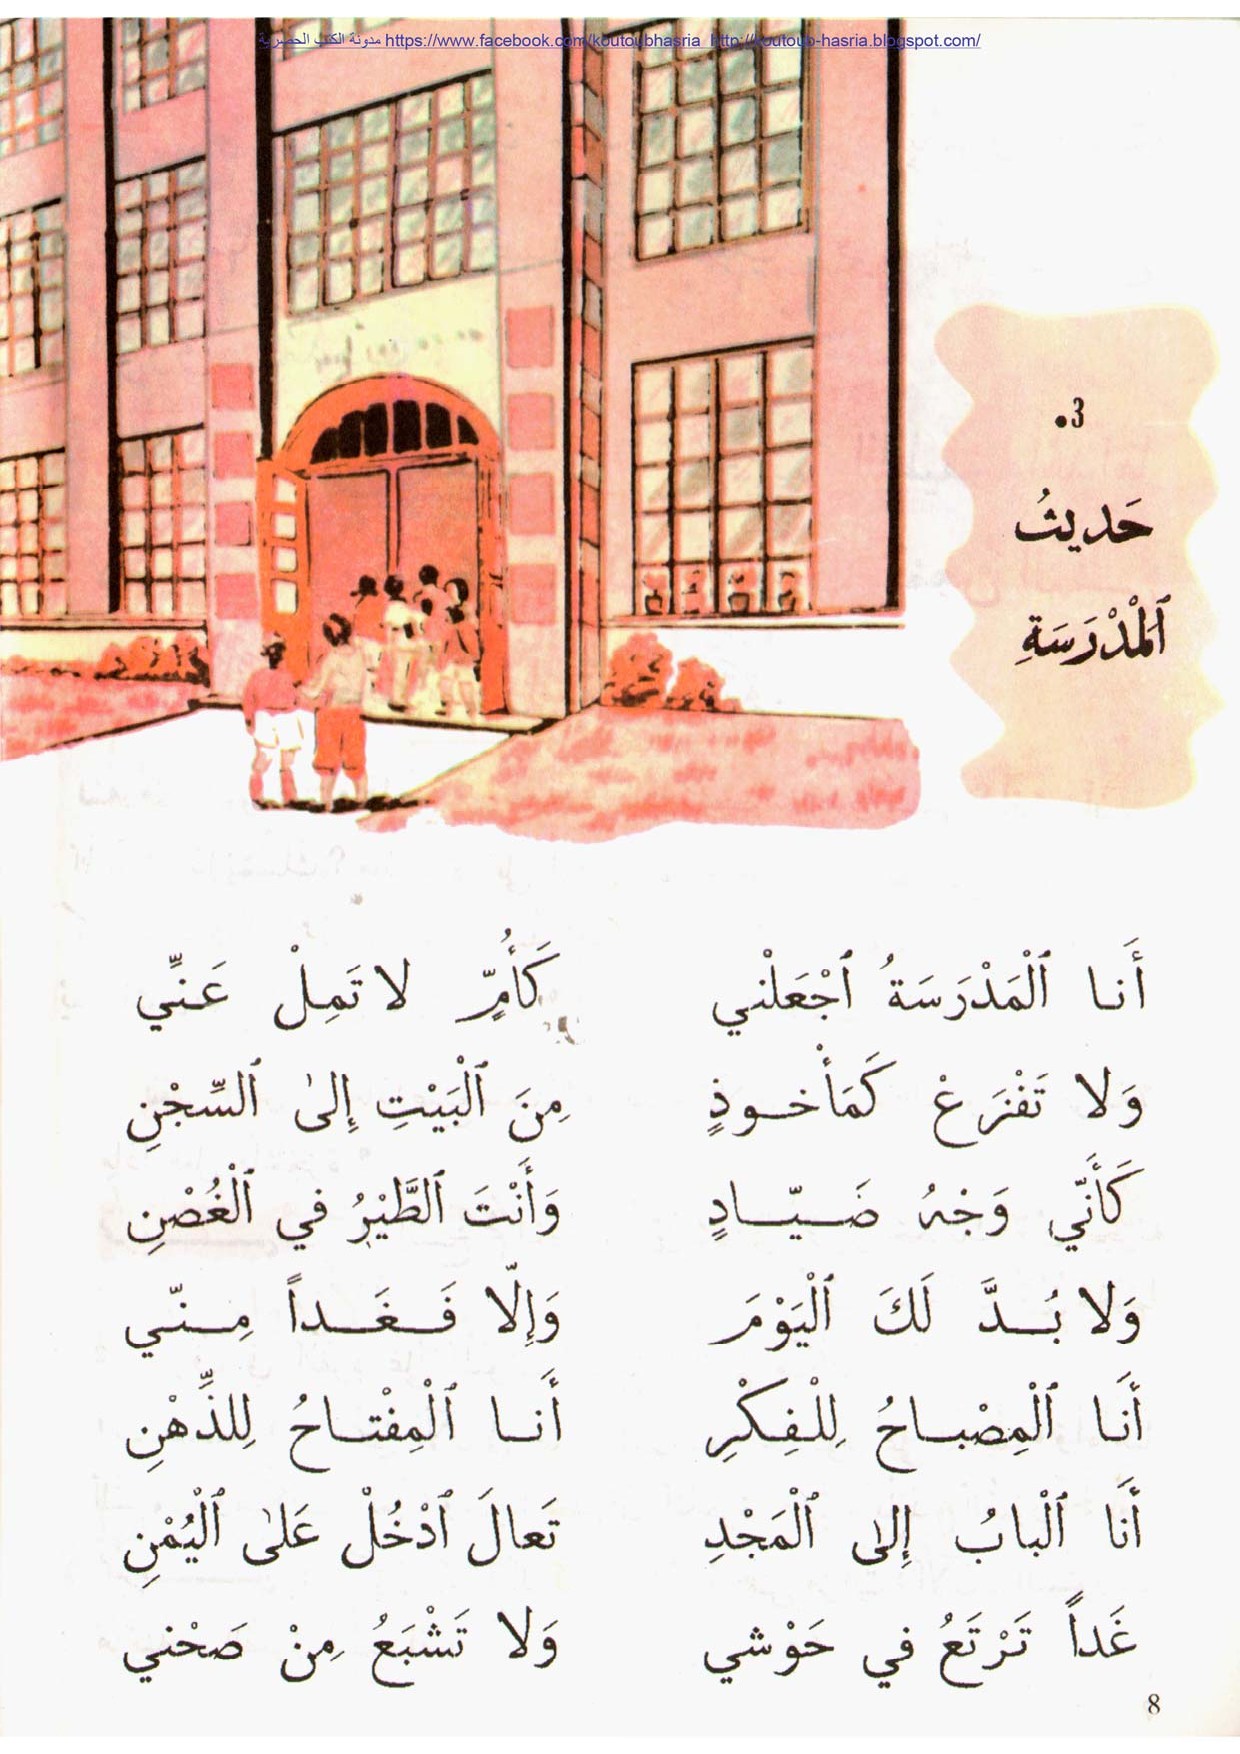 مدونة الكتب الحصرية https://www.facebook.com/koutoubhasria http://koutoub-hasria.blogspot.com/
3•
حَديثُ
ٱلْمَدْرَسَةِ
أَنا ٱلْمَدْرَسَةُ ٱجْعَلْني كَأُمٍّ لا تَمِلْ عَنّي
وَلا تَفْزَعْ كَمَأْخوذٍ مِنَ ٱلْبَيْتِ إِلىٰ ٱلسِّجْنِ
كَأَنّي وَجْهُ صَيّادٍ وَأَنْتَ ٱلطَّيْرُ في ٱلْغُصْنِ
وَلا بُدَّ لَكَ ٱلْيَوْمَ وَإِلّا فَغَداً مِنّي
أَنا ٱلْمِصْباحُ لِلْفِكْرِ أَنا ٱلْمِفْتاحُ لِلذِّهْنِ
أَنا ٱلْبابُ إِلىٰ ٱلْمَجْدِ تَعالَ ٱدْخُلْ عَلىٰ ٱلْيُمْنِ
غَداً تَرْتَعُ في حَوْشي وَلا تَشْبَعُ مِنْ صَحْني
8